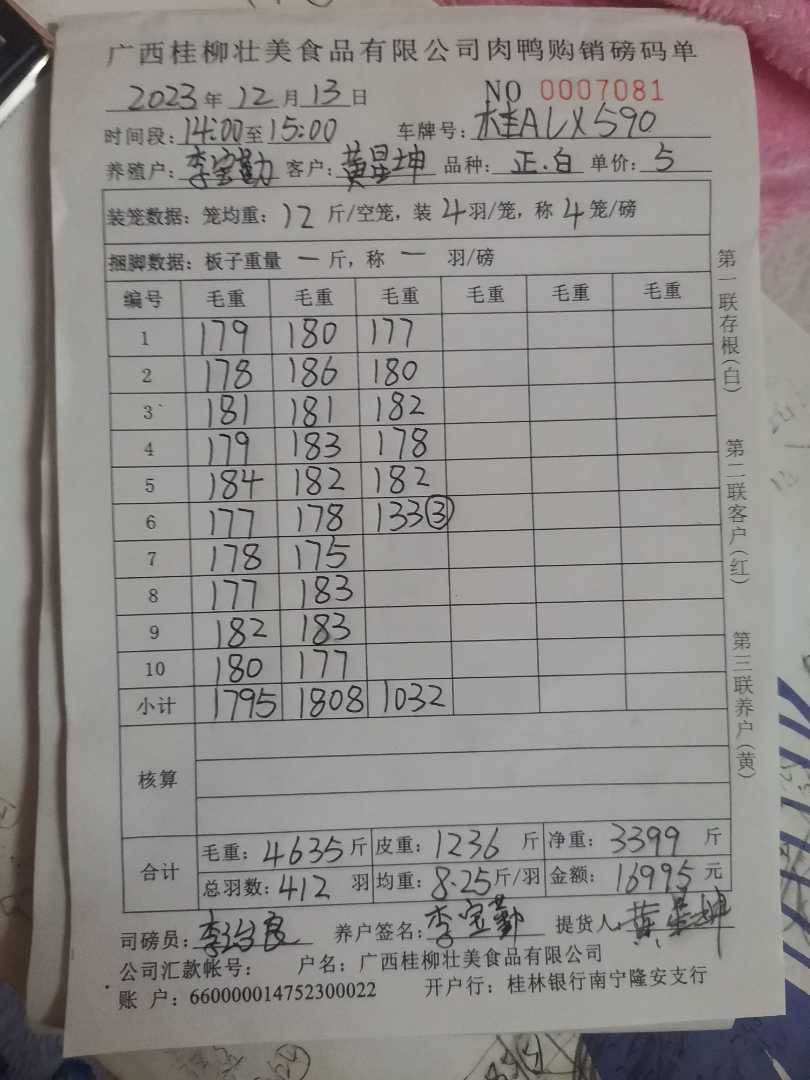 广西桂柳壮美食品有限公司肉鸭购销磅码单
2023年 12月 13日 NO 0007081
时间段:14:00至15:00 车牌号:桂ALX590
养殖户:李宝勤 客户:黄星坤 品种:正.白 单价:5
装笼数据:笼均重:12斤/空笼,装4羽/笼,称4笼/磅
捆脚数据:板子重量 一斤,称 一 羽/磅
编号 毛重 毛重 毛重 毛重 毛重 毛重
1 179 180 177
2 178 186 180
3 181 181 182
4 179 183 178
5 184 182 182
6 177 178 133③
7 178 175
8 177 183
9 182 183
10 180 177
小计 1795 1808 1032
核算
合计
毛重:4635斤 皮重:1236斤 净重:3399斤
总羽数:412羽 均重:8.25斤/羽 金额:16995元
司磅员: 养户签名:李宝勤 提货人:黄星坤
公司汇款帐号: 户名:广西桂柳壮美食品有限公司
账 户:660000014752300022 开户行:桂林银行南宁隆安支行
第一联存根(白)
第二联客户(红)
第三联养户(黄)